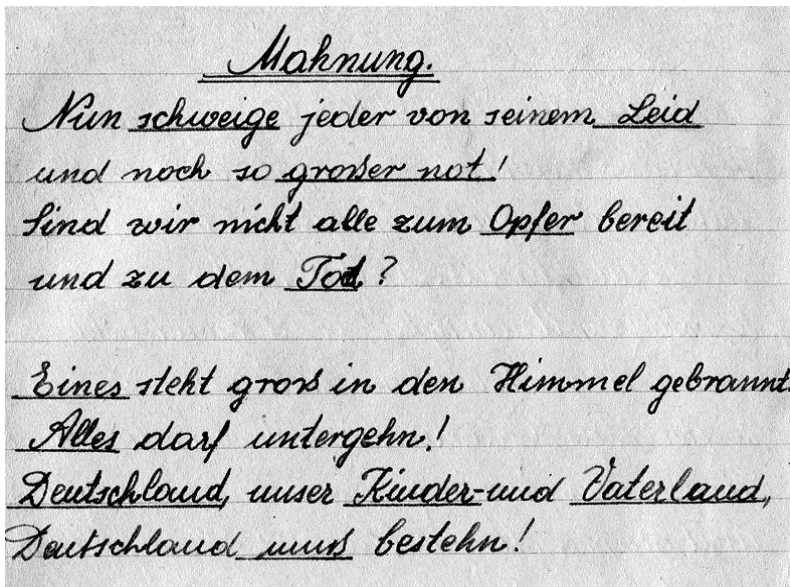 Mahnung.
Nun schweige jeder von seinem Leid
und noch so großer not!
Sind wir nicht alle zum Opfer bereit
und zu dem Tod?
Eines steht groß in den Himmel gebrannt.
Alles darf untergehn!
Deutschland, unser Kinder- und Vaterland,
Deutschland muß bestehn!